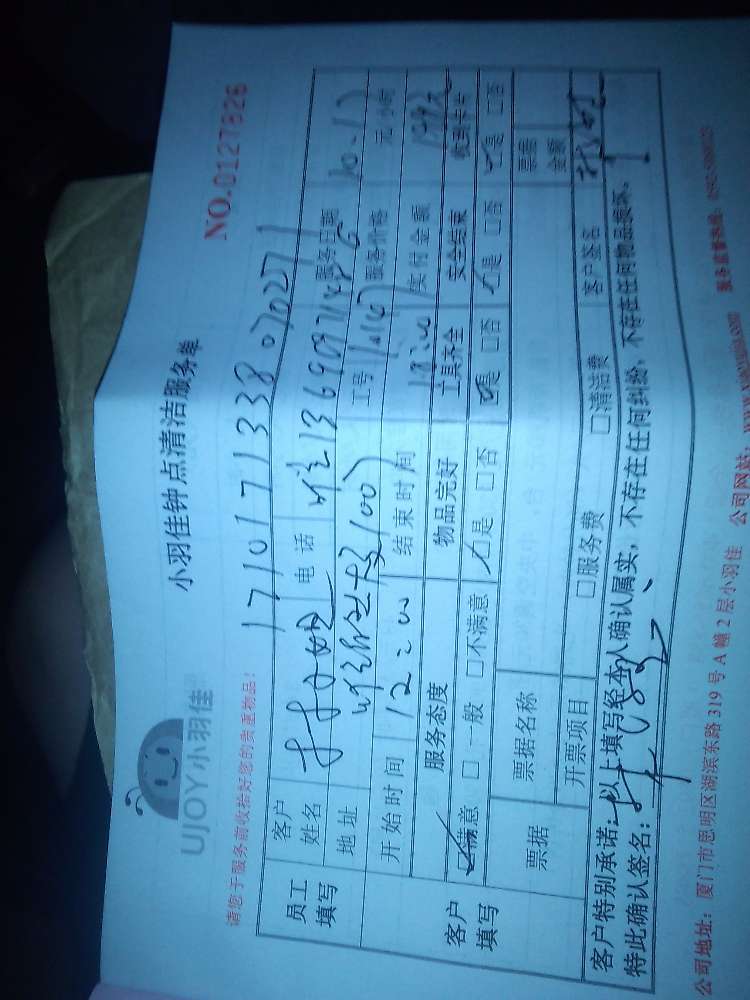 UJOY小羽佳
小羽佳钟点清洁服务单
NO.0127826
请您于服务前收拾好您的贵重物品!
171017133807027
员工填写
客户姓名
电话 13690971486
服务日期 10.17
地址
工号
服务价格 元/小时
开始时间 12:00
结束时间
实付金额
客户填写
服务态度 物品完好 工具齐全 安全结束 收到卡片
☑满意 □一般 □不满意 ☑是 □否 ☑是 □否 ☑是 □否 ☑是 □否
票据
票据名称
票据金额
开票项目 □服务费 □清洁费
客户签名
客户特别承诺:以上填写经本人确认属实,不存在任何纠纷,不存在任何物品损坏。
特此确认签名:
公司地址:厦门市思明区湖滨东路 319 号 A 幢 2 层小羽佳 公司网站: 服务监督热线: